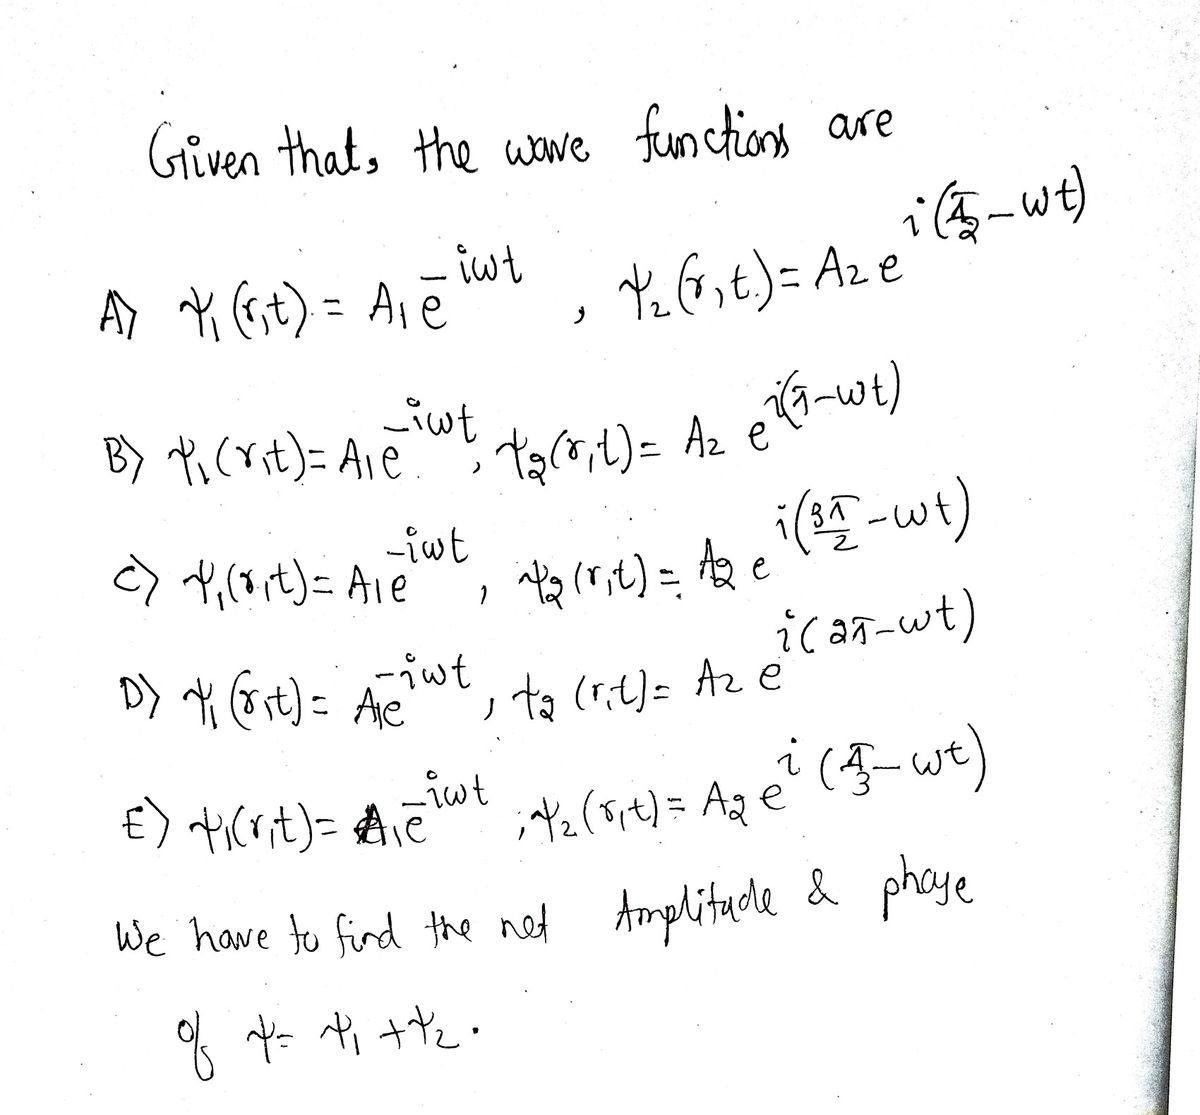 Given that, the wave functions are
A) ψ₁(r,t) = A₁e^{-iωt} , ψ₂(r,t) = A₂e^{i(π/2-ωt)}
B) ψ₁(r,t) = A₁e^{-iωt}, ψ₂(r,t) = A₂ e^{i(π-ωt)}
C) ψ₁(r,t) = A₁e^{-iωt} , ψ₂(r,t) = A₂ e^{i(3π/2-ωt)}
D) ψ₁(r,t) = A₁e^{-iωt}, ψ₂(r,t) = A₂ e^{i(2π-ωt)}
E) ψ₁(r,t) = A₁e^{-iωt} ; ψ₂(r,t) = A₂ e^{i(π/3-ωt)}
We have to find the net Amplitude & phase
of ψ = ψ₁ + ψ₂.